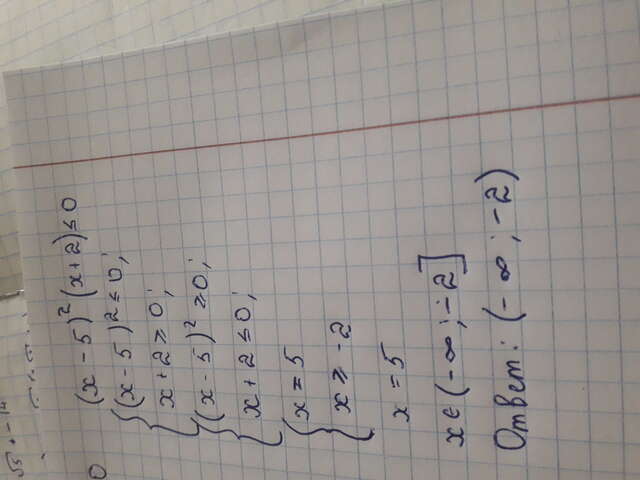 (x - 5)² (x + 2) ≤ 0
(x - 5)² ≤ 0;
x + 2 ≥ 0;
(x - 5)² ≥ 0;
x + 2 ≤ 0;
x = 5
x ≥ -2
x = 5
x ∈ (-∞; -2]
Ответ: (-∞; -2)